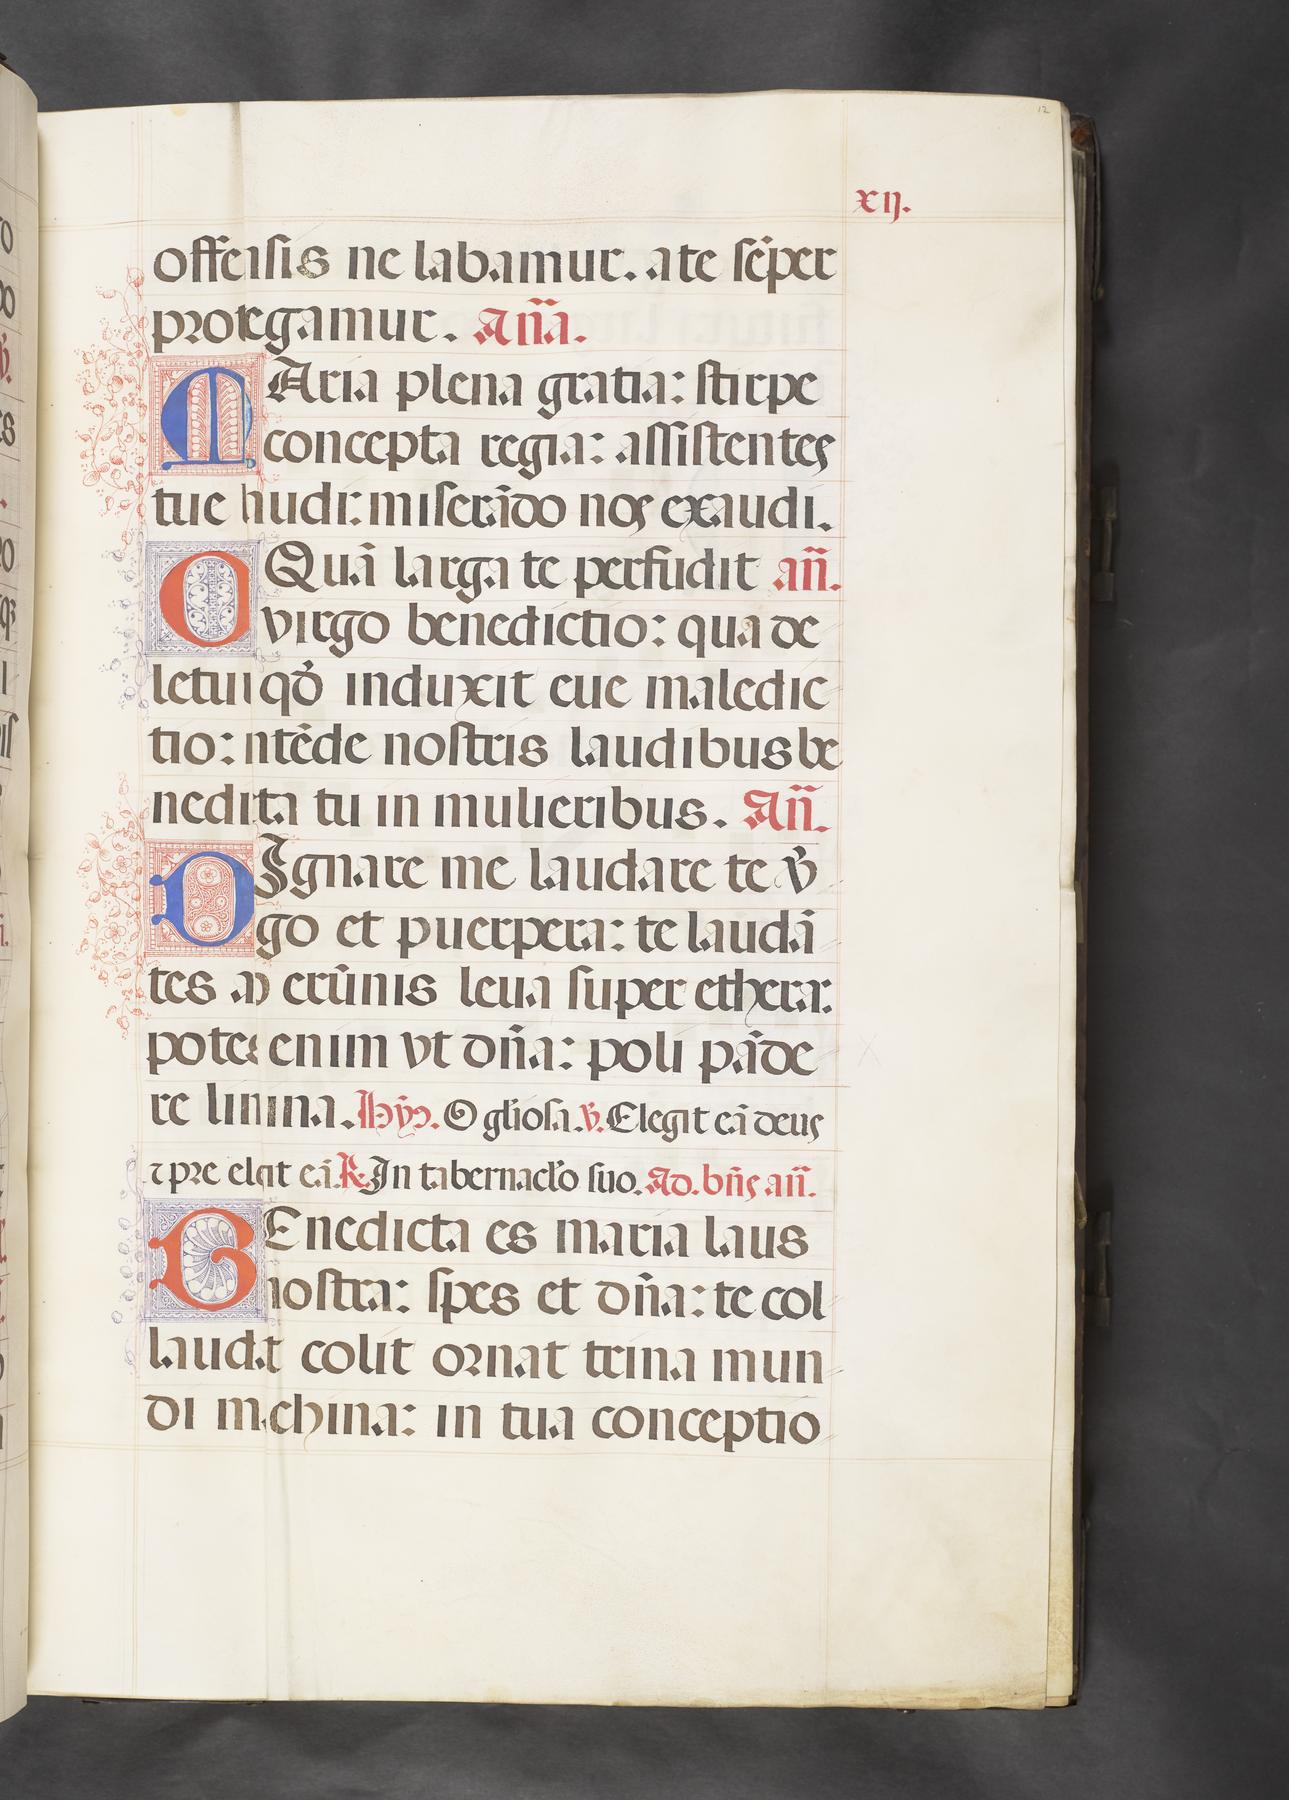 12
xij.
offensis ne labamur. a te sēper
protegamur. An̄a.
MAria plena gratia: stirpe
concepta regia: assistentes
tue laudi: miserādo nos exaudi.
OQuā larga te perfudit an̄.
virgo benedictio: qua de
letur qđ induxit eue maledic
tio: intēde nostris laudibus be
nedicta tu in mulieribus. An̄.
DIgnare me laudare te v̾
go et puerpera: te laudā
tes ab erūnis leua super ethera:
potes enim vt dn̄a: poli pāde
re limina. Hym̄. O gl̄iosa. V. Elegit eā deus
⁊ pre elegit eā. R. In tabernacl̄o suo. Ad. bn̄s an̄.
BEnedicta es maria laus
nostra: spes et dn̄a: te col
laudat colit ornat trina mun
di machina: in tua conceptio